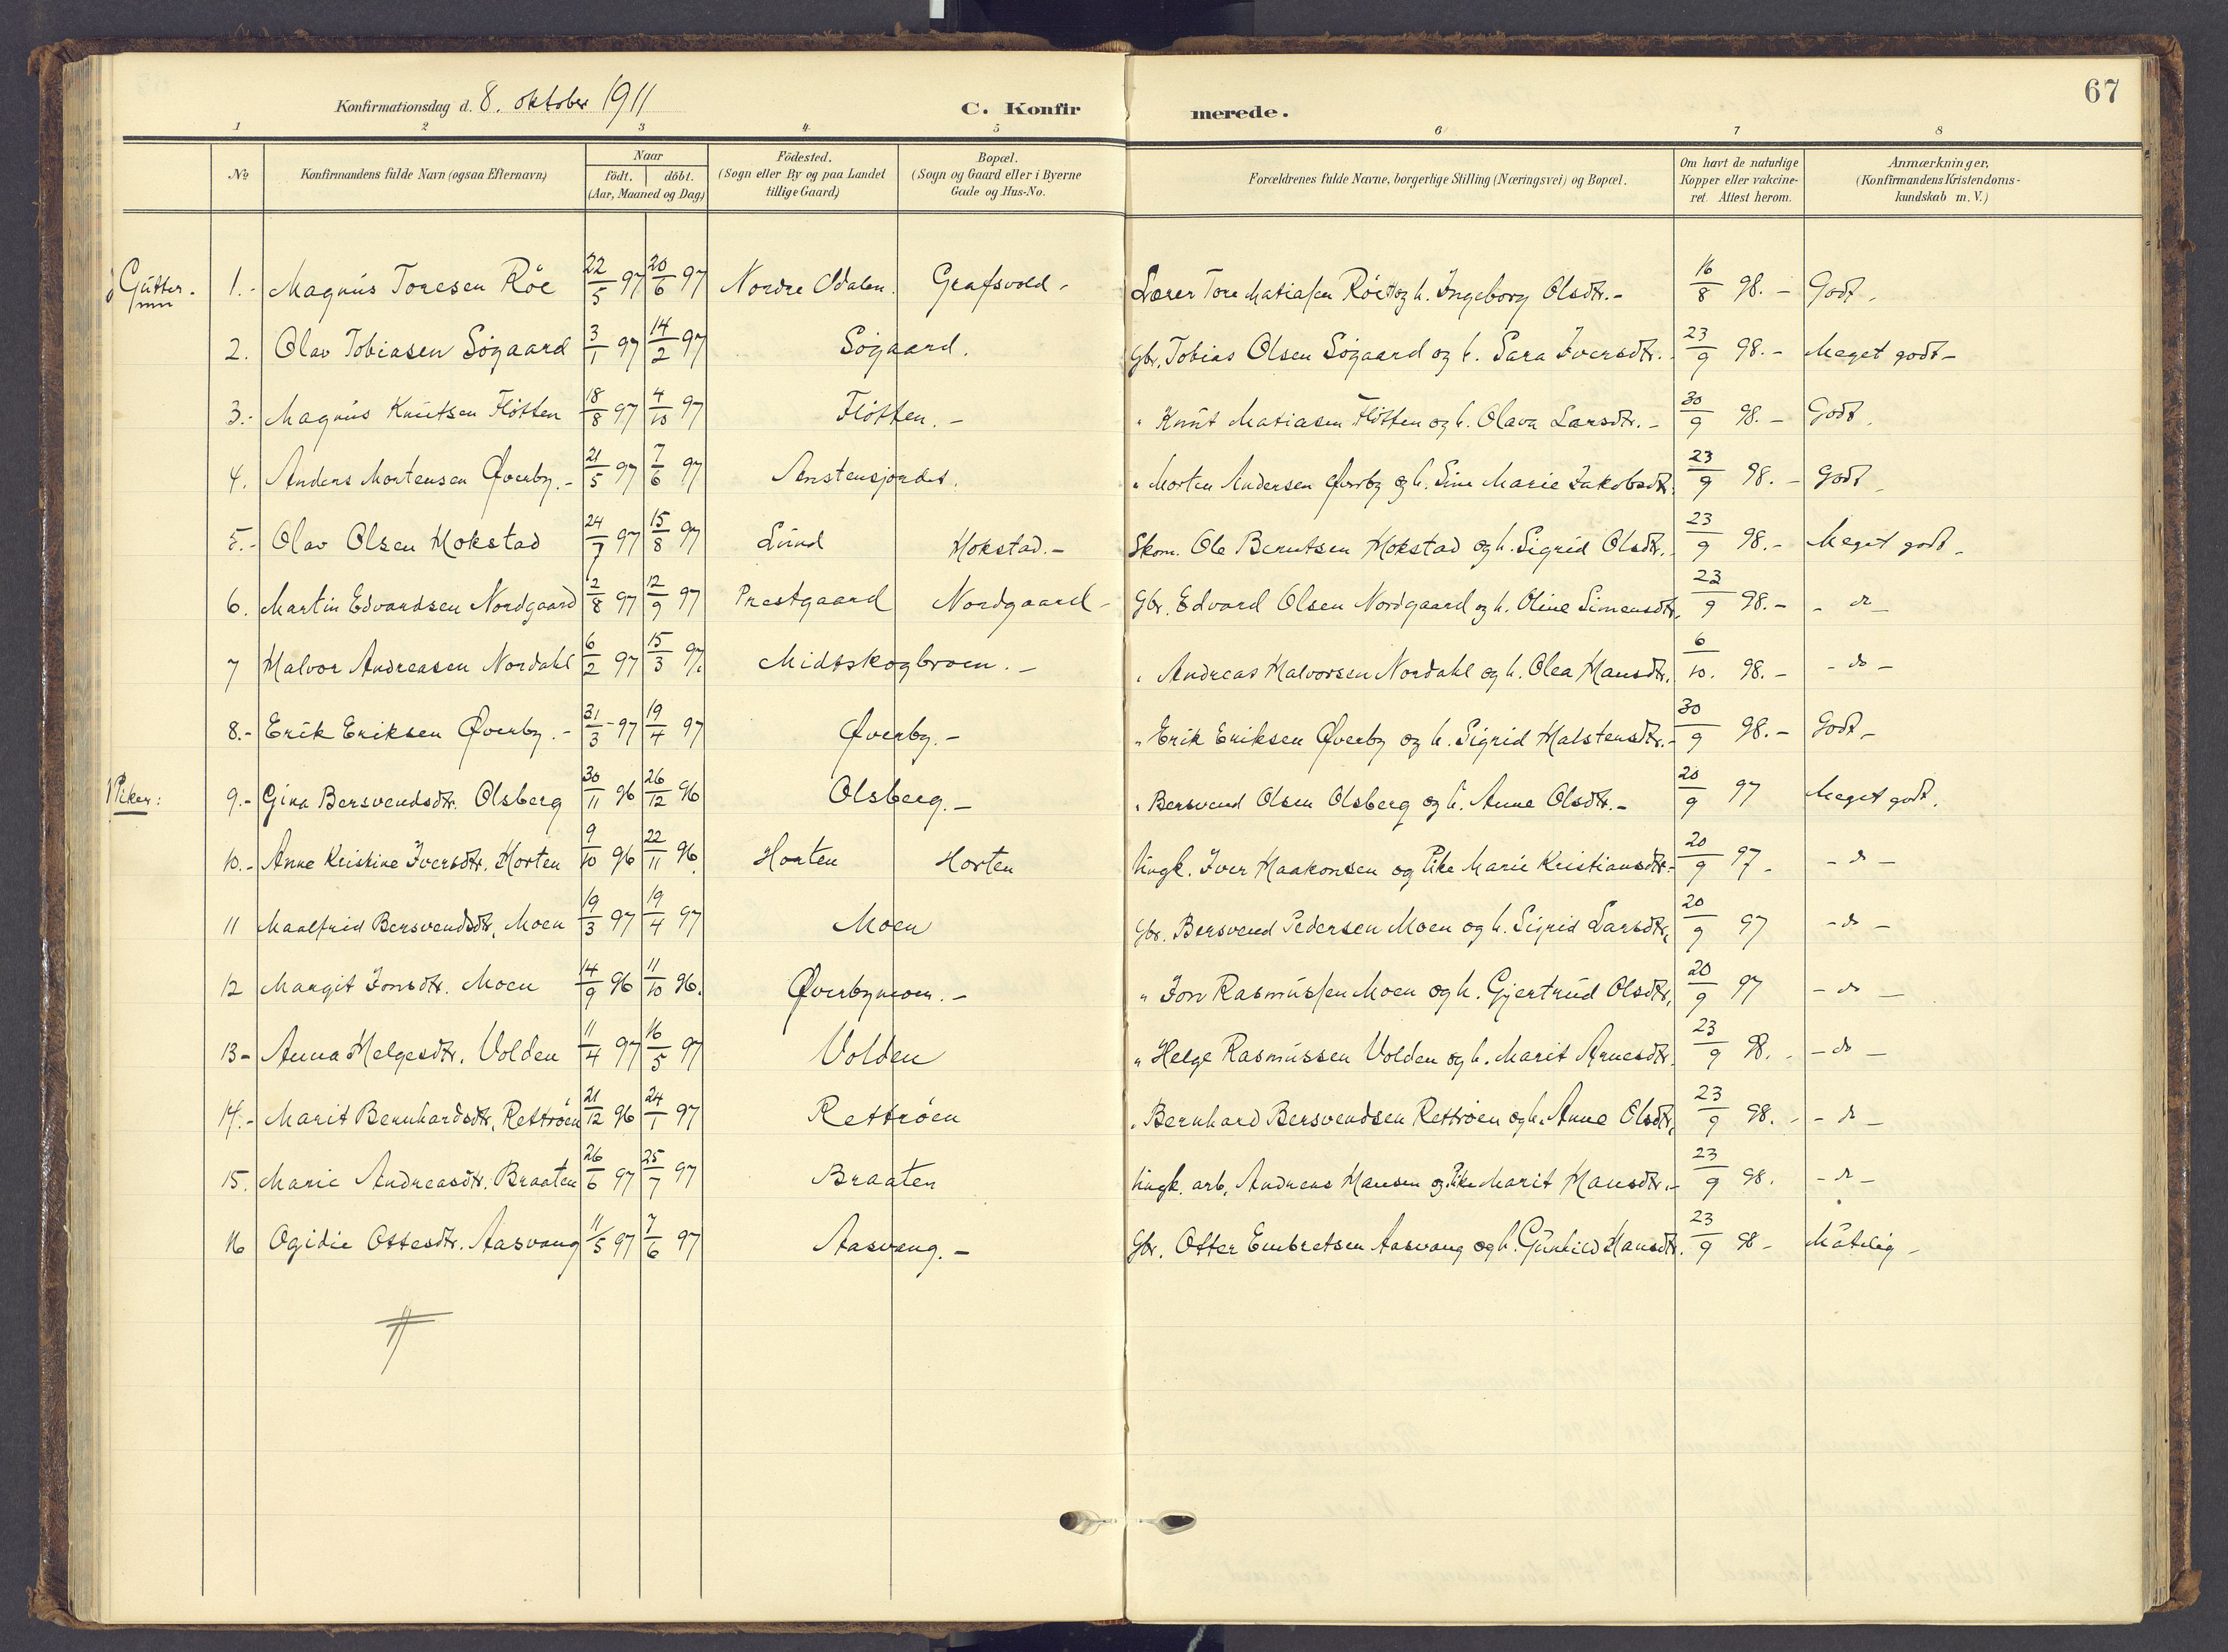 67
Konfirmationsdag d. 8. oktober 1911
C. Konfirmerede.
1 2 3 4 5 6 7 8
No
Konfirmandens fulde Navn (ogsaa Efternavn)
Naar
födt. döbt.
(Aar, Maaned og Dag)
Födested.
(Sogn eller By og paa Landet
tillige Gaard)
Bopæl.
(Sogn og Gaard eller i Byerne
Gade og Hus-No.
Forældrenes fulde Navne, borgerlige Stilling (Næringsvei) og Bopæl.
Om havt de naturlige
Kopper eller vakcine-
ret. Attest herom.
Anmærkninger.
(Konfirmandens Kristendoms-
kundskab m. V.)
Gutter. 1.- Magnus Toresen Röe 22/5 97 20/6 97 Nordre Odalen. Grafsvold - Lærer Tore Matiasen Röe og h. Ingeborg Olsdtr.- 16/8 98.- Godt.
2. Olav Tobiasen Sögaard 3/1 97 14/2 97 Sögaard. Gbr. Tobias Olsen Sögaard og h. Sara Iversdtr. 23/9 98.- Meget godt-
3.- Magnus Knutsen Flötten 18/8 97 4/10 97 Flötten.- " Knut Matiasen Flötten og h. Olava Larsdtr.- 30/9 98.- Godt.
4. Anders Mortensen Øverby.- 21/5 97 7/6 97 " Morten Andersen Øverby og h. Sine Marie Jakobsdtr. 23/9 98.- Godt-
5.- Olav Olsen Hokstad 24/7 97 15/8 97 Lund Hokstad.- Skom. Ole Berntsen Hokstad og h. Sigrid Olsdtr. 23/9 98.- Meget godt-
6. Martin Edvardsen Nordgaard 12/8 97 12/9 97 Prestgaard Nordgaard- Gbr. Edvard Olsen Nordgaard og h. Oline Simensdtr. 23/9 98.- - do -
7 Halvor Andreasen Nordahl 6/2 97 15/3 97. Midtskogbroen.- " Andreas Halvorsen Nordahl og h. Olea Hansdtr. 6/10. 98.- - do -
8.- Erik Eriksen Øverby.- 31/3 - 97 19/4 97 Øverby.- " Erik Eriksen Øverby og h. Sigrid Halstensdtr.- 30/9 98.- Godt-
Piker: 9.- Gina Bersvendsdtr. Olsberg 30/11 96 26/12 96 Olsberg.- " Bersvend Olsen Olsberg og h. Anne Olsdtr.- 20/9 97 Meget godt.
10.- Anne Kristine Iversdtr. Horten 9/10 96 22/11 96. Horten Horten Ungk. Iver Haakonsen og Pike Marie Kristiansdtr.- 20/9 97.- - do -
11 Maalfrid Bersvendsdtr. Moen 19/3 97 19/4 97 Moen Gbr. Bersvend Pedersen Moen og h. Sigrid Larsdtr. 20/9 97 - do -
12 Margit Jonsdtr. Moen 14/9 96 11/10 96. Øverbymoen.- " Jon Rasmussen Moen og h. Gjertrud Olsdtr. 20/9 97 - do -
13- Anna Helgesdtr. Volden 11/4 97 16/5 97 Volden " Helge Rasmussen Volden og h. Marit Arnesdtr. 23/9 98.- - do -
14.- Marit Bernhardsdtr. Rettröen 21/12 96 24/1 97 Rettröen " Bernhard Bersvendsen Rettröen og h. Anne Olsdtr. 23/9 98.- - do -
15. Marie Andreasdtr. Braaten 26/6 97 25/7 97 Braaten Ungk. arb. Andreas Hansen og Pike Marit Hansdtr.- 23/9 98. - do -
16 Ogidie Ottesdtr. Aasvang 11/5 97 7/6 97 Aasvang.- Gbr. Otter Embretsen Aasvang og h. Gunhild Hansdtr. 23/9 98- Måtelig-